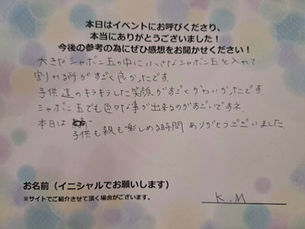 本日はイベントにお呼びくださり、
本当にありがとうございました！
今後の参考の為にぜひ感想をお聞かせください！
大きなシャボン玉の中に小さなシャボン玉を入れて
割れる所がすごく良かったです
子供達のキラキラした笑顔がすごくかわいかったです
シャボン玉でも色々な事が出来るのがすごいですネ
本日は
子供も親も楽しめる時間 ありがとうございました
お名前（イニシャルでお願いします）
※サイトでご紹介させて頂く場合がございます。
K.M